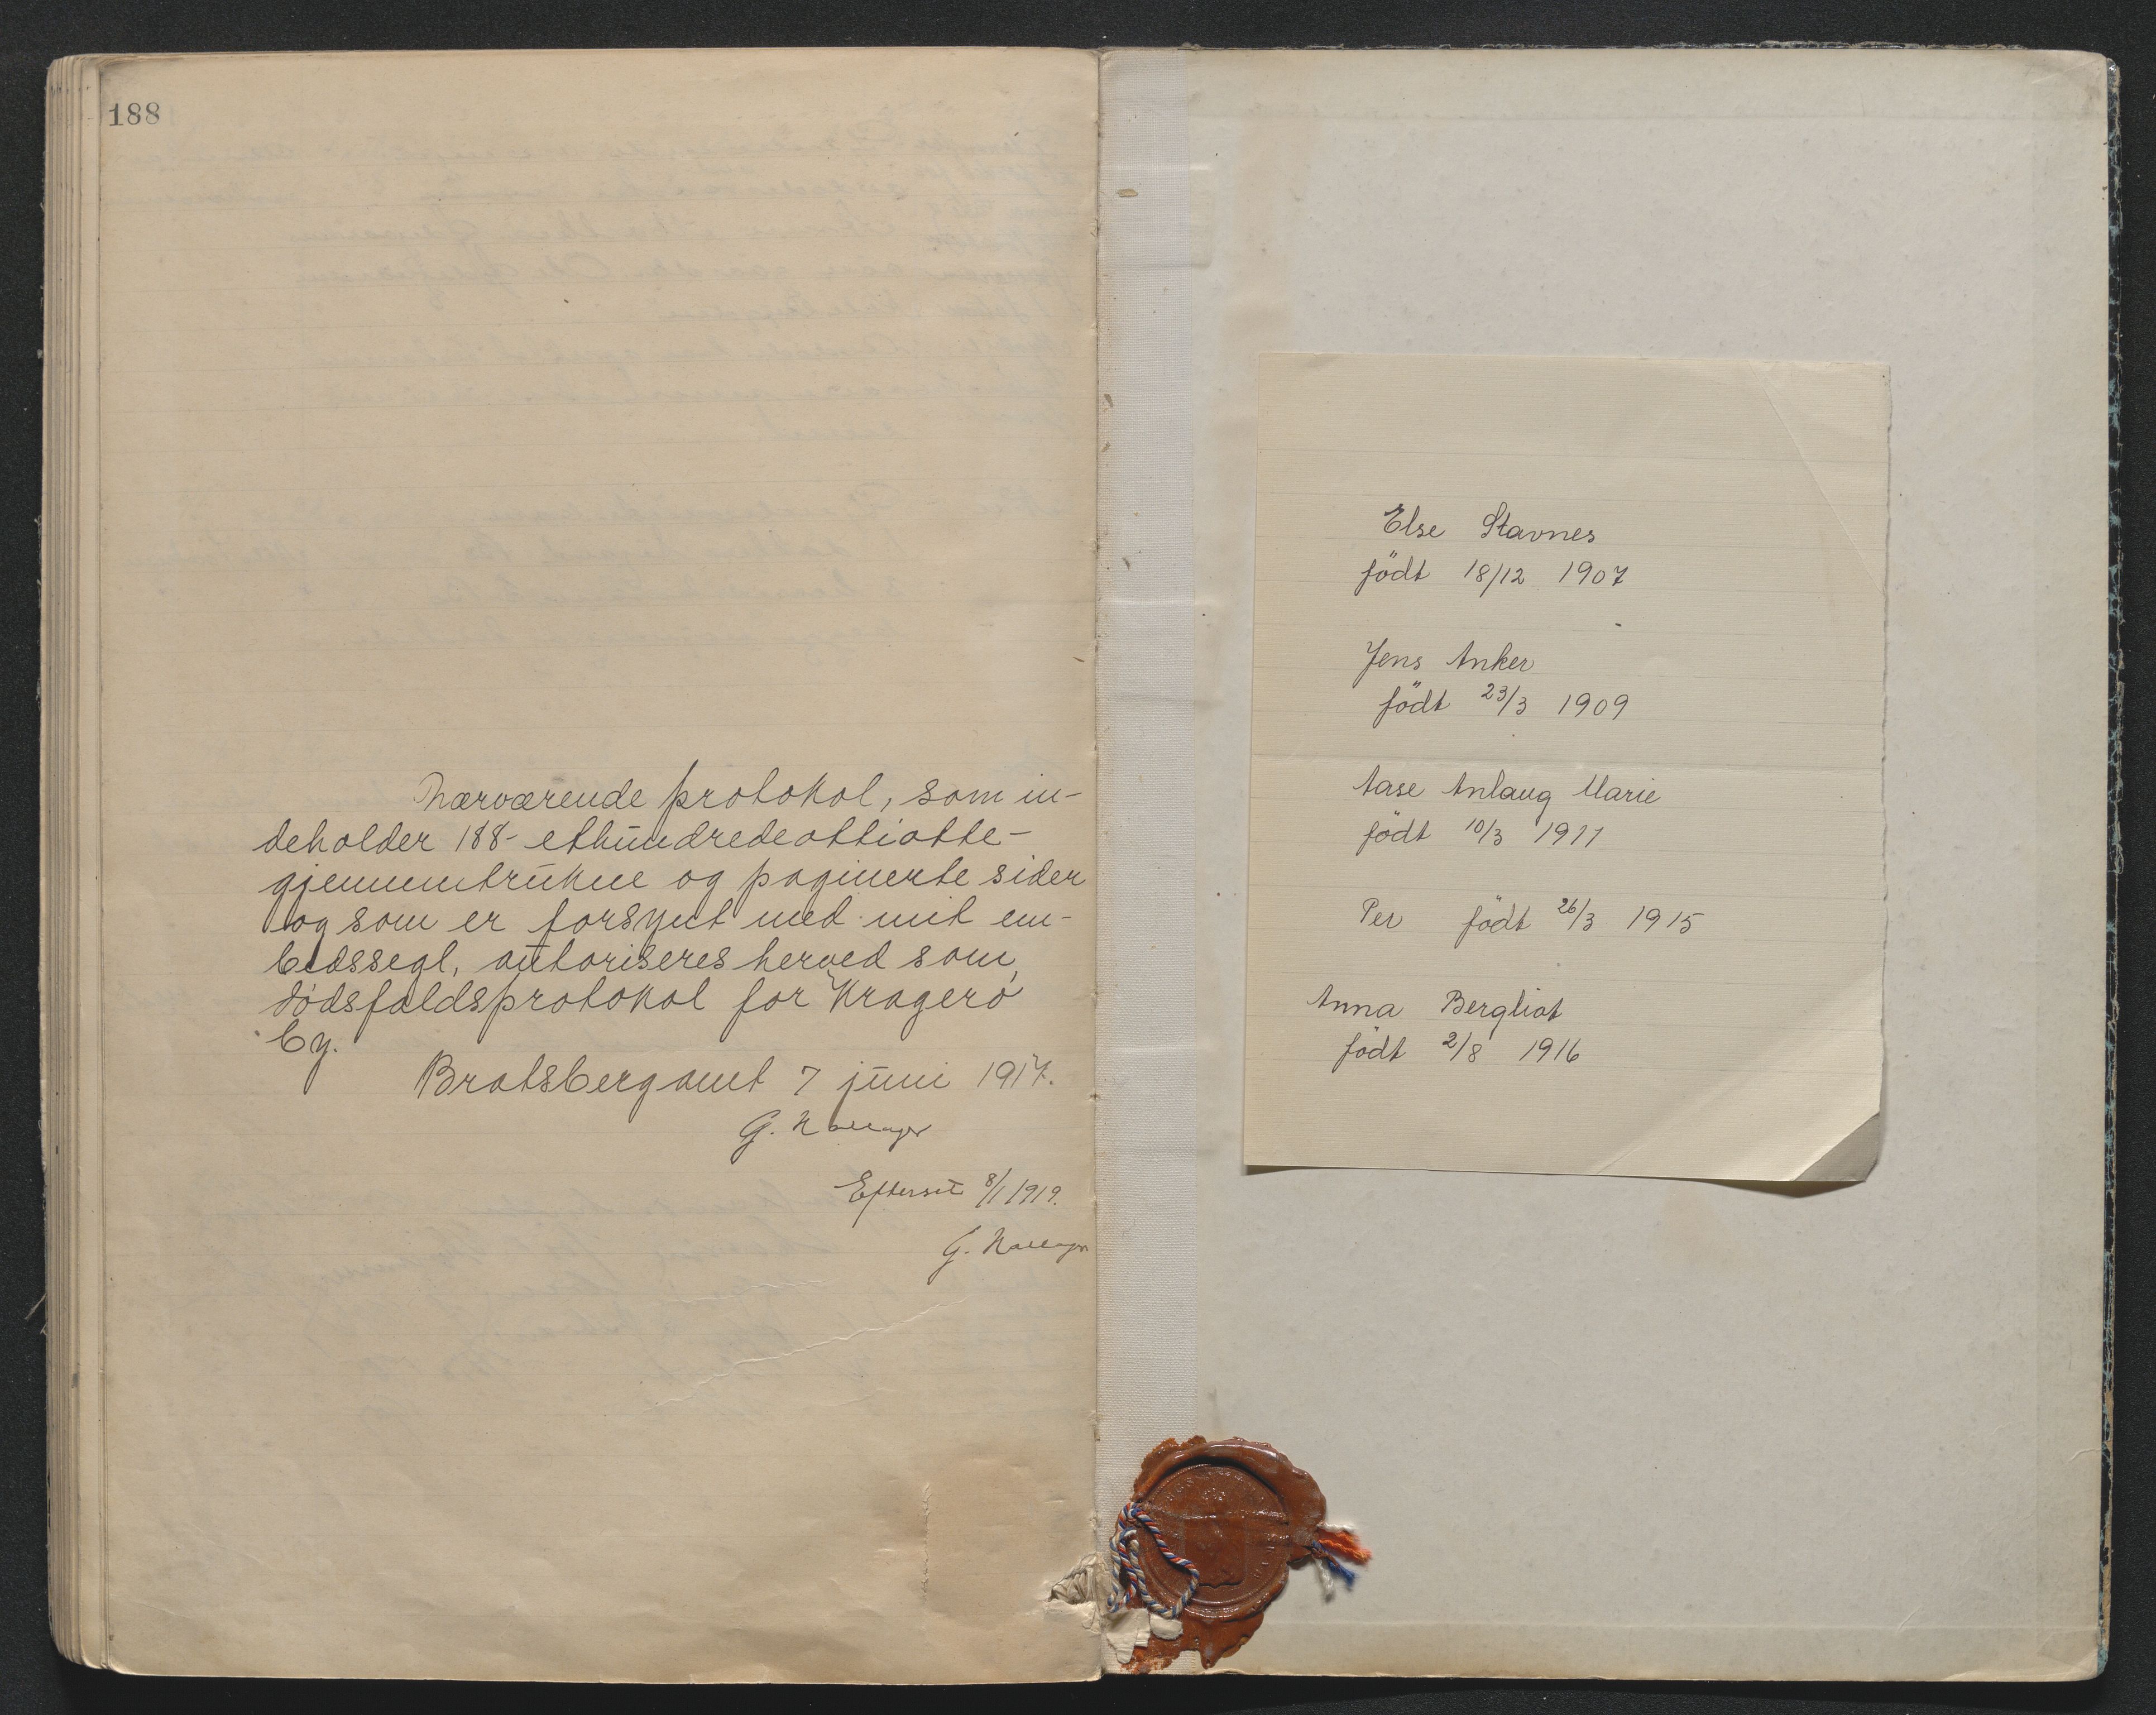 188
Nærværende protokol, som in-
deholder 188- ethundredeottiotte-
gjennemtrukne og paginerte sider
og som er forsynt med mit em-
bedssegl, autoriseres herved som
dødsfaldsprotokol for Kragerø
by.
Bratsberg amt 7 juni 1917.
G.
Efterset 8/1 1919.
G.
Else Stavnes
födt 18/12 1907
Jens Anker
födt 23/3 1909
Aase Anlaug Marie
födt 10/3 1911
Per födt 26/3 1915
Anna Bergliot
födt 2/8 1916